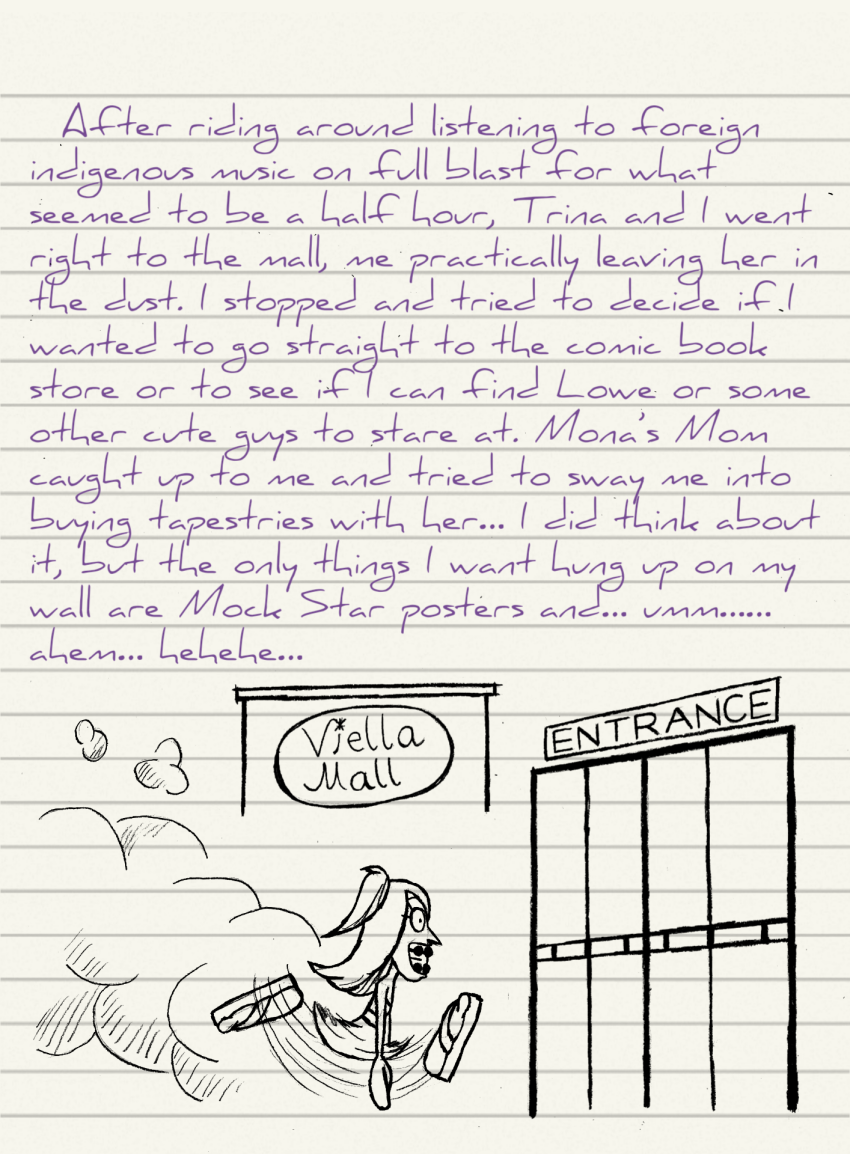 After riding around listening to foreign
indigenous music on full blast for what
seemed to be a half hour, Trina and I went
right to the mall, me practically leaving her in
the dust. I stopped and tried to decide if I
wanted to go straight to the comic book
store or to see if I can find Lowe or some
other cute guys to stare at. Mona's Mom
caught up to me and tried to sway me into
buying tapestries with her... I did think about
it, but the only things I want hung up on my
wall are Mock Star posters and... umm......
ahem... hehehe...
Viella
Mall
ENTRANCE